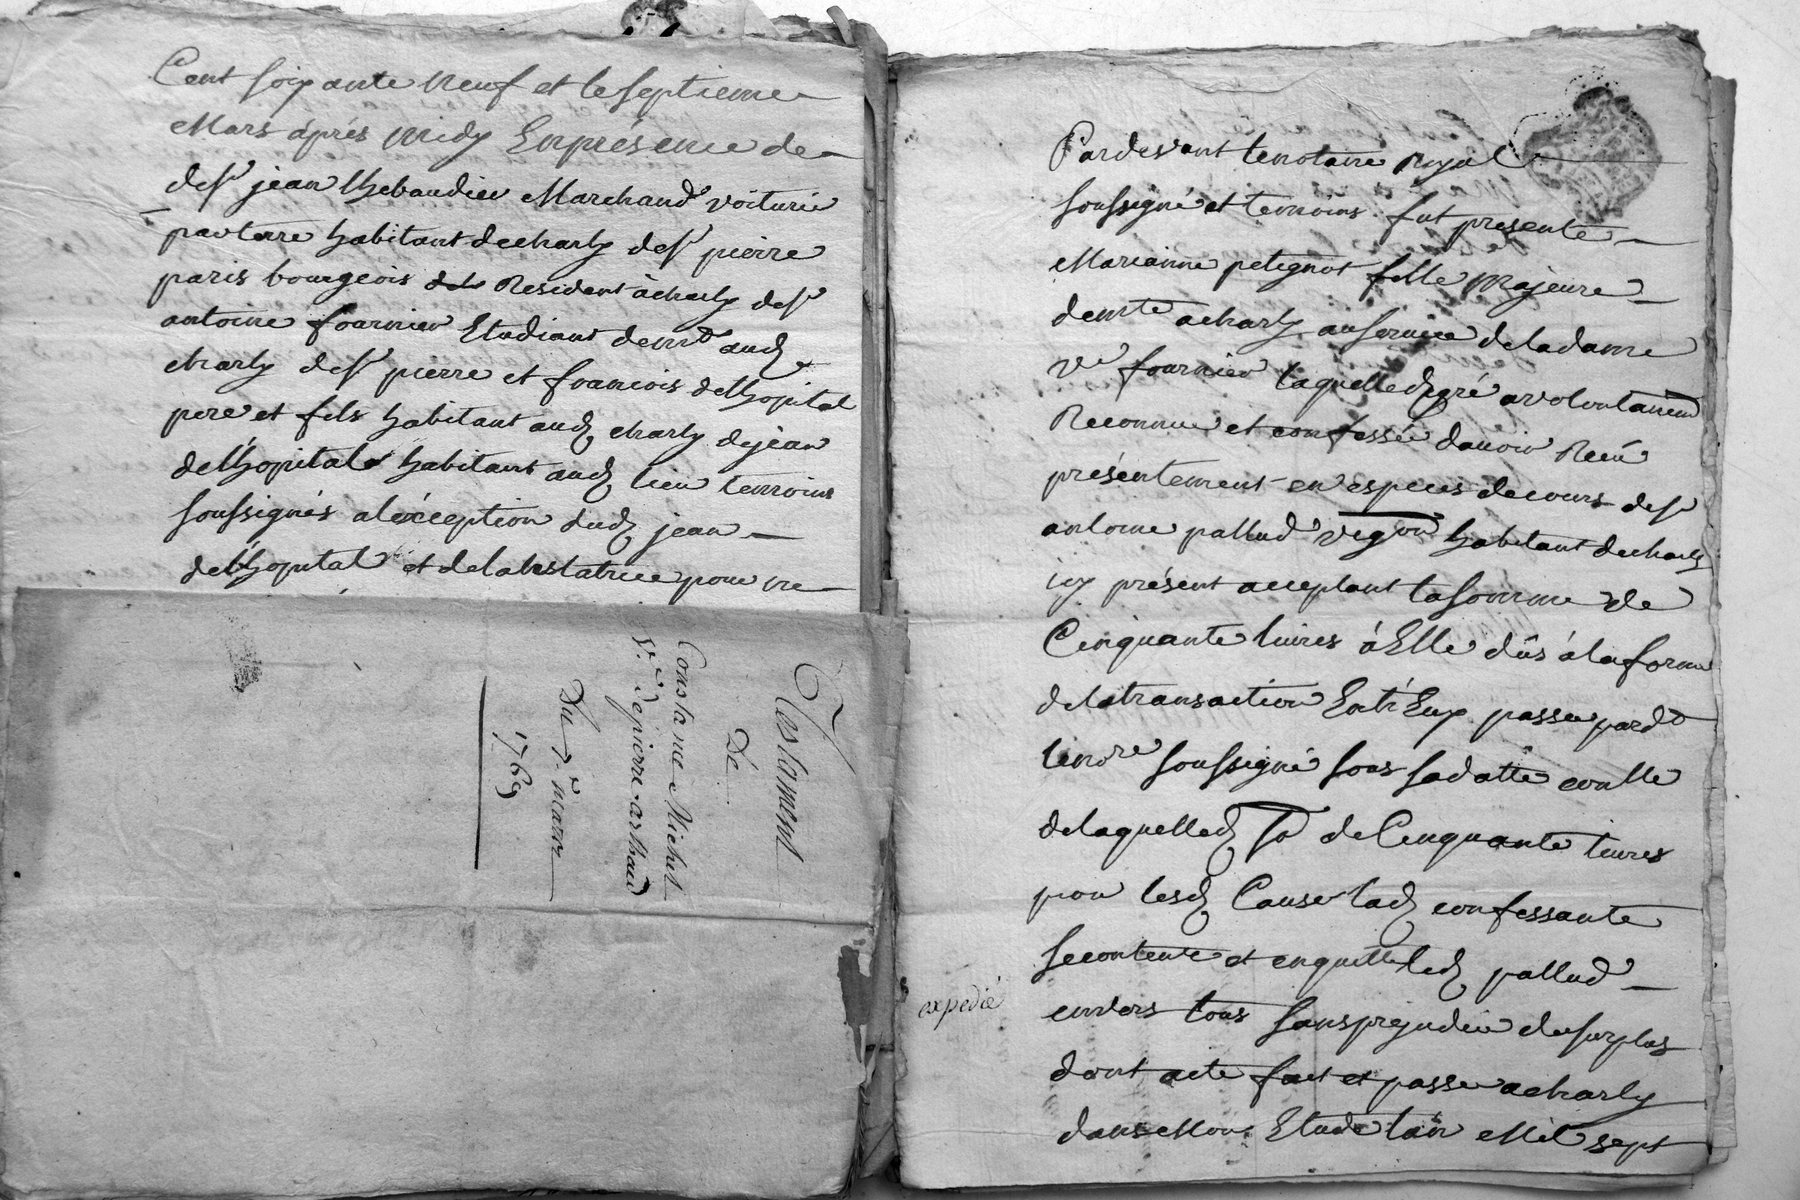 Cent soixante neuf et le septieme
Mars après midy En présence de
de sr jean thebaudier Marchand voiturié
par terre habitant de charly de sr pierre
paris bourgeois Resident à charly de sr
antoine fournier Etudiant demt aud
charly de sr pierre et francois delhopital
pere et fils habitant aud charly de jean
delhopital habitant aud lieu temoins
soussignés a l'éxception dud jean
delhopital et de la testatrice pour ne
Testament
De
Constance Michet
Ve. de pierre arthaud
Du 7e. mars
1769
Pardevant le notaire royal
soussigné et temoins fut presente
Marianne petignot fille Majeure
demte a charly au service de la dame
ve fournier laquelle de gré a volontairemt
Reconnue et confessée d'avoir Reçu
présentement en especes de cours de sr
antoine pallud vigon habitant de charly
icy présent acceptant la somme de
Cinquante livres à Elle dûs à la forme
de la transaction Entr'Eux passée pardt
le nore soussigné sous sa datte conlle
de laquelled so de Cinquante livres
pour lesd Causes lad confessante
se contente et en quitte led pallud
expedié
envers tous sans prejudice du surplus
dont acte fait et passé a charly
dans Mon Etude l'an Mil sept